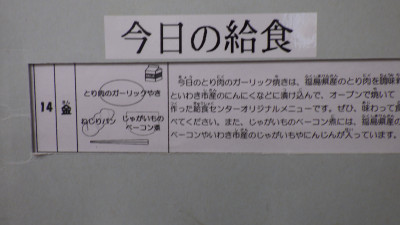 今日の給食
14
金
きん
とり肉のガーリックやき
ねじりパン
じゃがいもの
ベーコン煮
今日のとり肉のガーリック焼きは、福島県産のとり肉を調味料
といわき市産のにんにくなどに漬け込んで、オーブンで焼いて
作った給食センターオリジナルメニューです。ぜひ、味わって食
べてください。また、じゃがいものベーコン煮には、福島県産の
ベーコンやいわき市産のじゃがいもやにんじんが入っています。